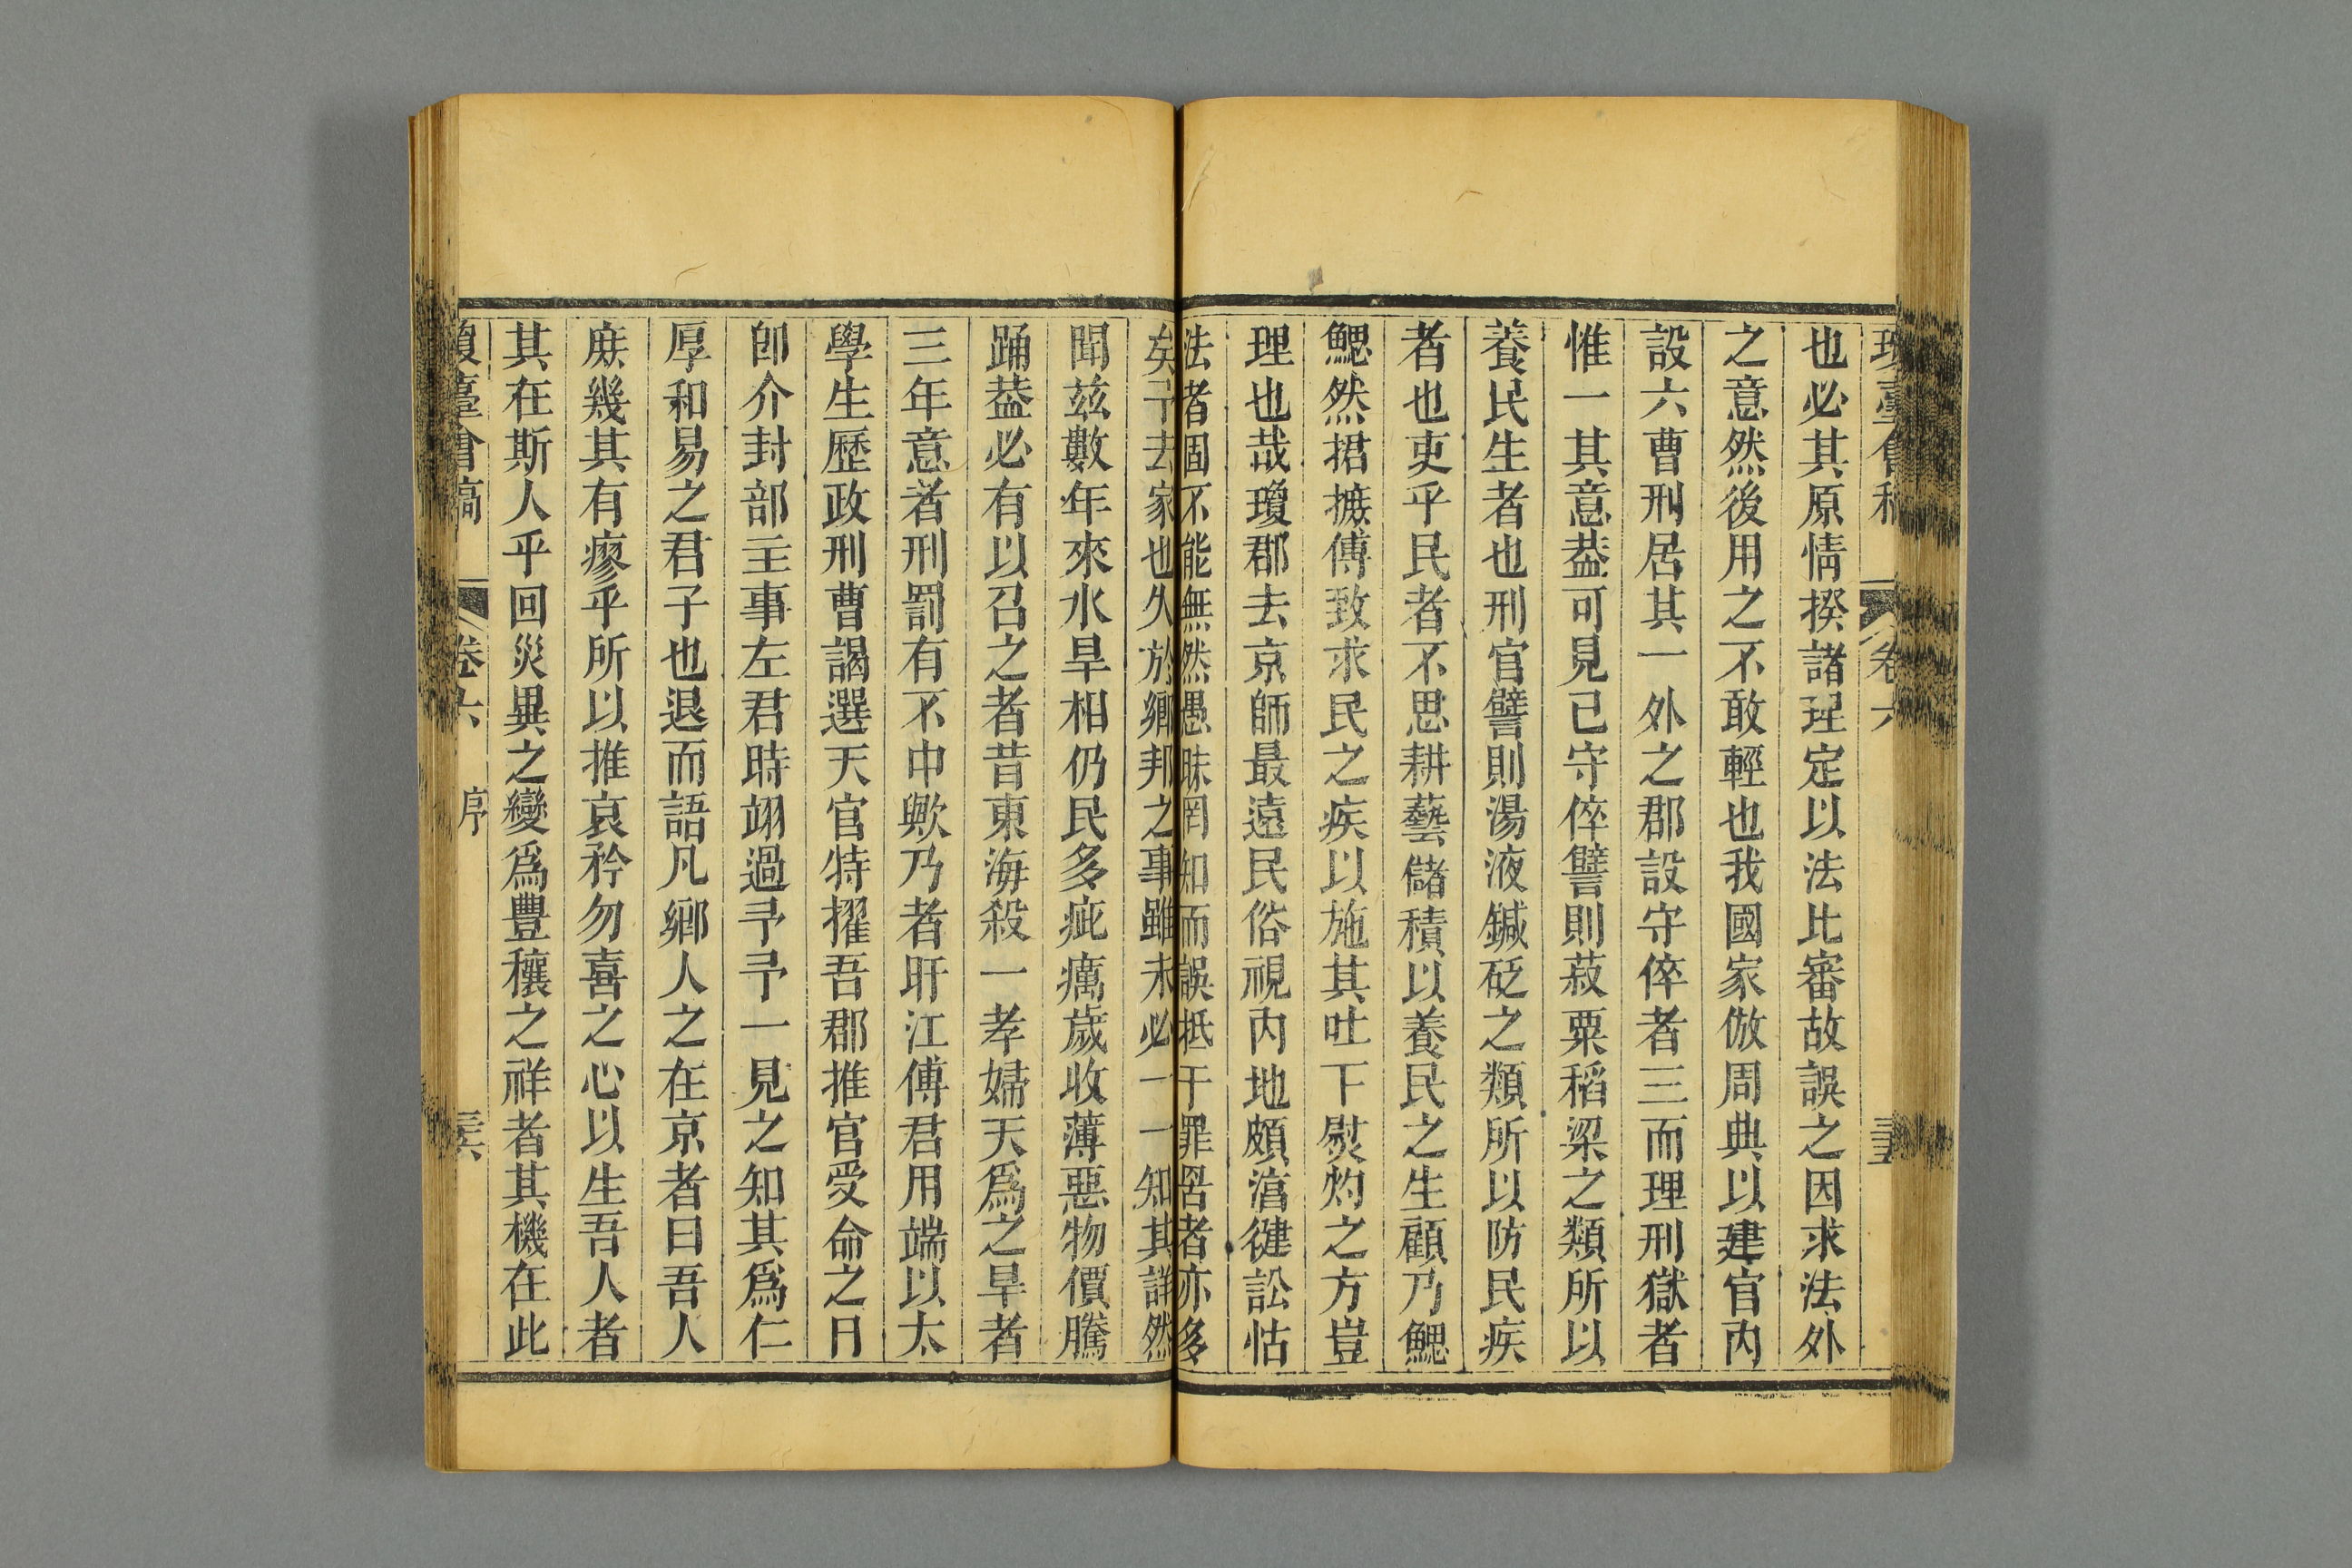 瓊臺會稿 卷六 三五
也必其原情揆諸理定以法比審故誤之因求法外
之意然後用之不敢輕也我國家倣周典以建官內
設六曹刑居其一外之郡設守倅者三而理刑獄者
惟一其意葢可見已守倅譬則菽粟稻梁之類所以
養民生者也刑官譬則湯液鍼砭之類所以防民疾
者也吏乎民者不思耕藝儲積以養民之生顧乃鰓
鰓然捃摭傅致求民之疾以施其吐下熨灼之方豈
理也哉瓊郡去京師最遠民俗視內地頗澝健訟怙
法者固不能無然愚昧罔知而誤抵于罪罟者亦多
矣予去家也久於鄉邦之事雖未必一一知其詳然
聞兹數年來水旱相仍民多疵癘歲收薄惡物價騰
踊葢必有以召之者昔東海殺一孝婦天爲之旱者
三年意者刑罰有不中歟乃者盱江傅君用端以太
學生歷政刑曹謁選天官特擢吾郡推官受命之日
卽介封部主事左君時翊過予予一見之知其爲仁
厚和易之君子也退而語凡鄉人之在京者曰吾人
庶幾其有瘳乎所以推哀矜勿喜之心以生吾人者
其在斯人乎回災異之變爲豐穰之祥者其機在此
瓊臺會稿 卷六 序 三六